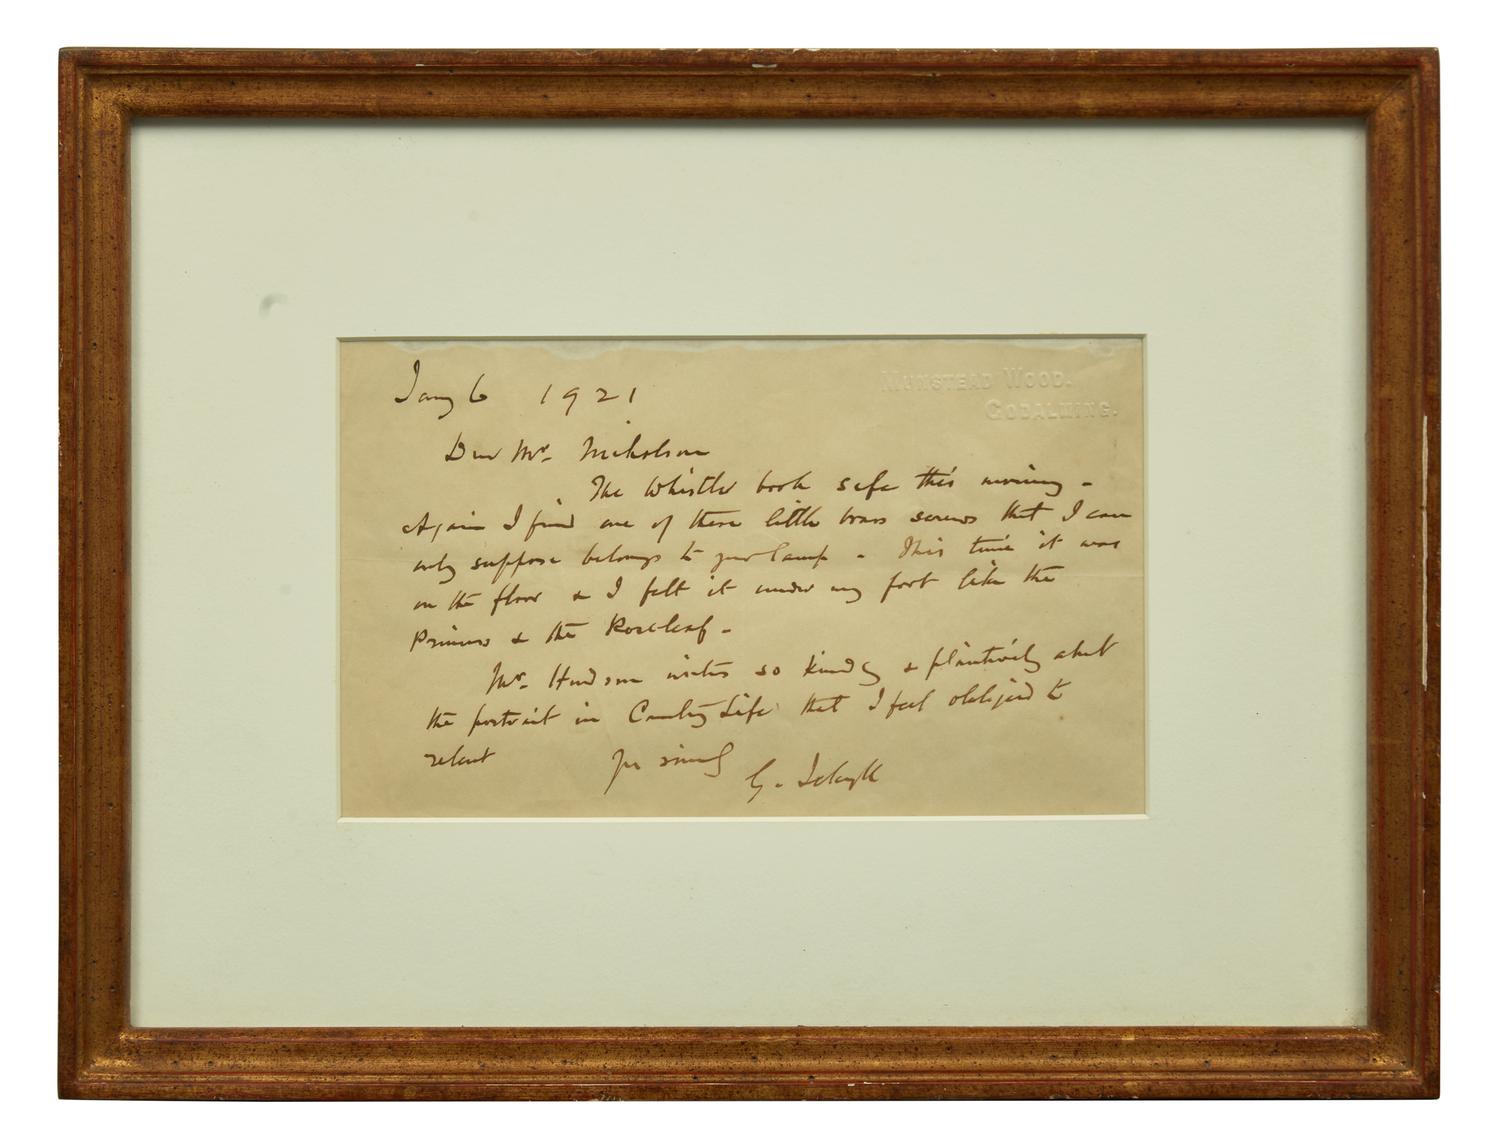 Jany 6 1921
MUNSTEAD WOOD.
GODALMING.
Dear Mr. Nicholson
The Whistler book safe this morning -
Again I find one of these little brass screws that I can
only suppose belongs to your lamp - This time it was
on the floor & I felt it under my foot like the
Princess & the Roseleaf -
Mr. Hudson writes so kindly & plaintively about
the portrait in Country Life that I feel obliged to
relent
Yrs sincerely
G. Jekyll